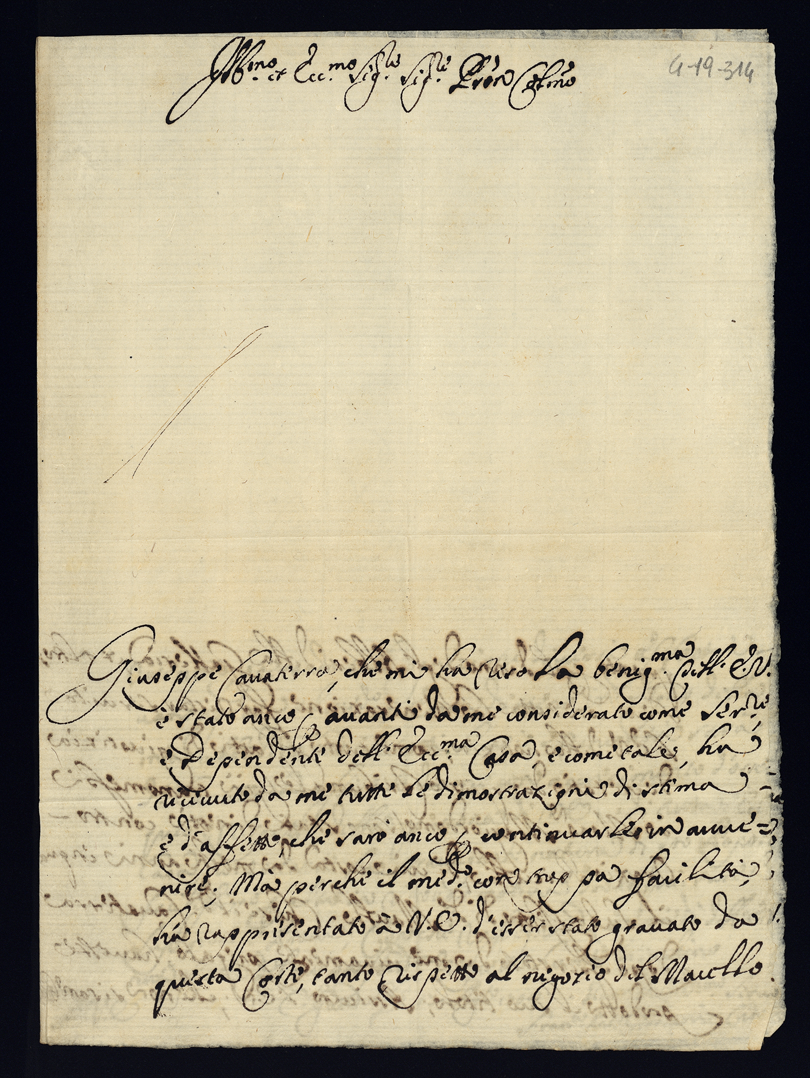 Ill.mo et Ecc.mo Sig.re Sig.re P.ron Col.mo
4-19-314
Giuseppe Cavaterra, che mi ha reso la benig.ma dell' E.V.
è stato anco p avanti da me considerato come ser.re,
e Dependente dell' Ecc.ma Casa, e come tale, ha
ricevuto da me tutte le dimostrazioni di stima
e d'affetto, che sarò anco p continuarle in avve=
nire; Mà perche il med.o con trop pa facilità,
hà rappresentato à V.E. d'esser stato gravato da
questa Corte, tanto rispetto al negozio del Macello